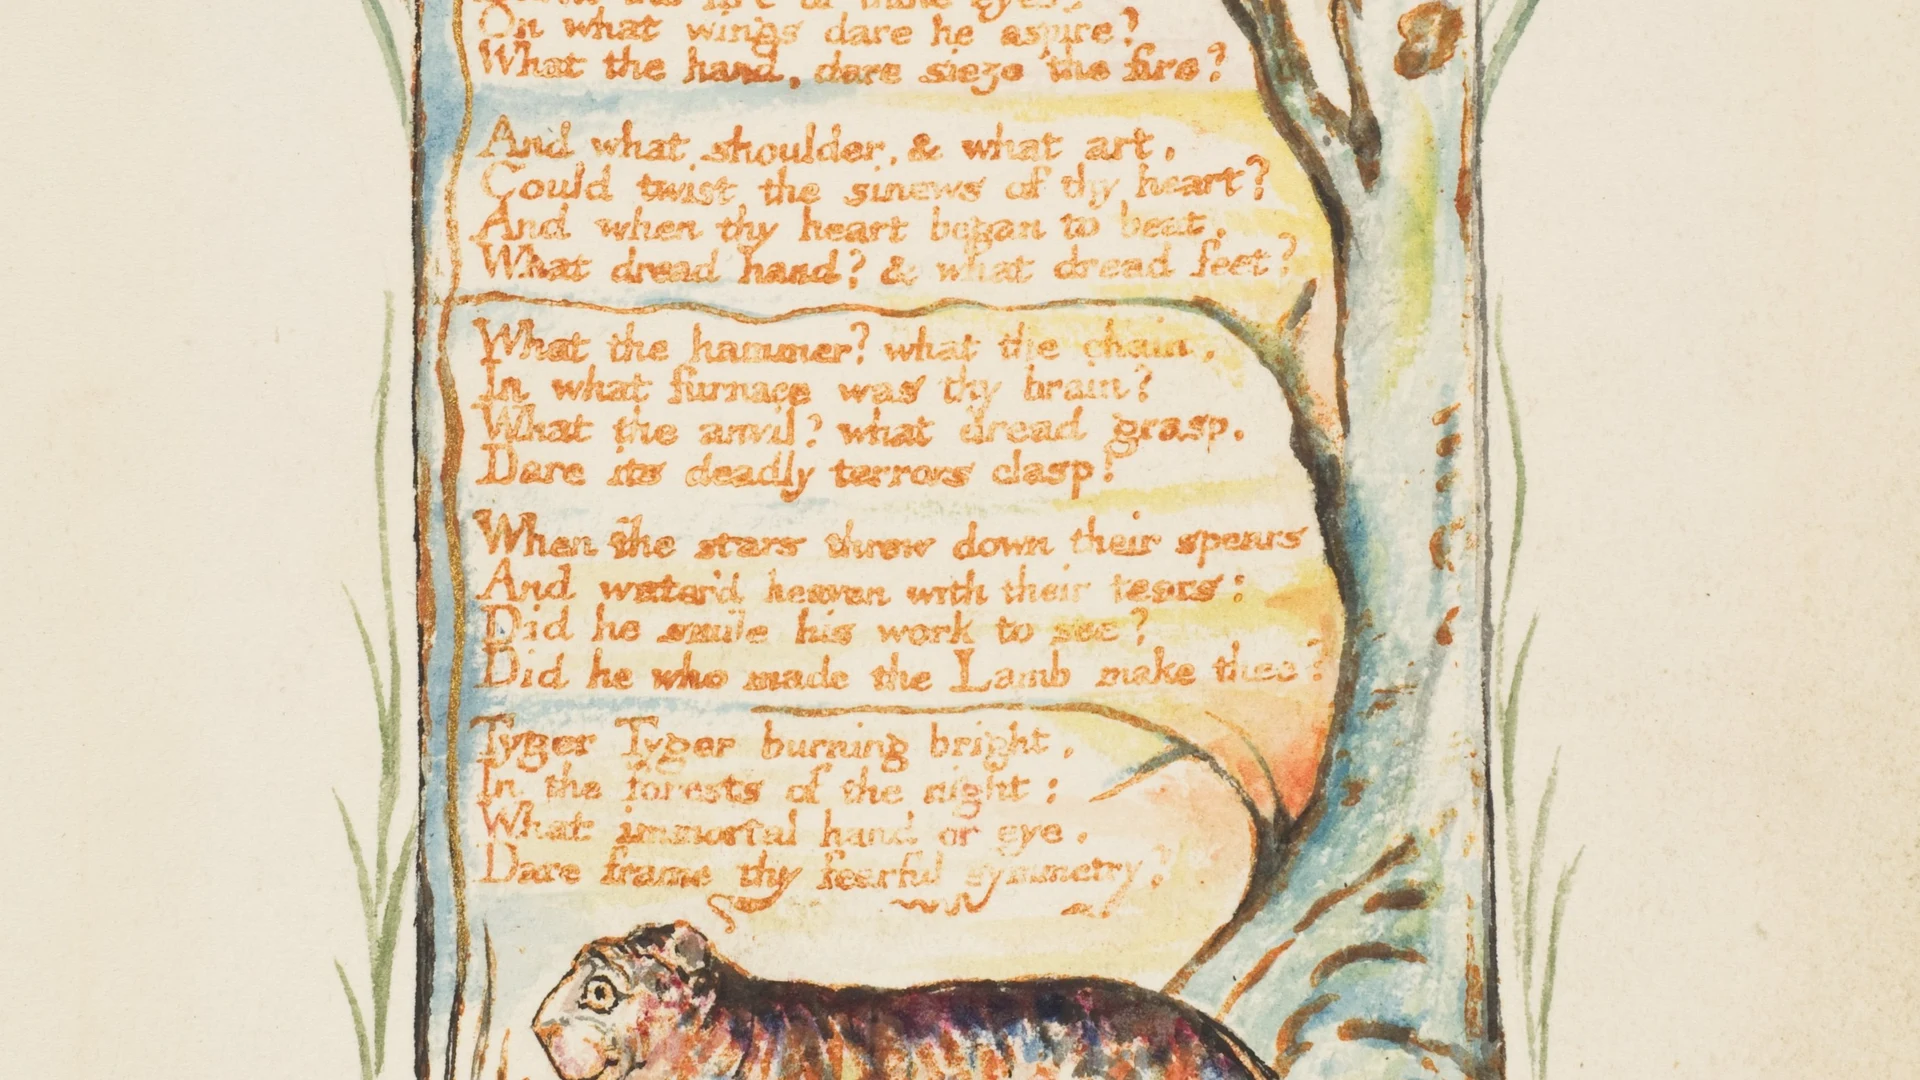 On what wings dare he aspire?
What the hand, dare sieze the fire?
And what shoulder, & what art,
Could twist the sinews of thy heart?
And when thy heart began to beat,
What dread hand? & what dread feet?
What the hammer? what the chain,
In what furnace was thy brain?
What the anvil? what dread grasp,
Dare its deadly terrors clasp!
When the stars threw down their spears
And water'd heaven with their tears:
Did he smile his work to see?
Did he who made the Lamb make thee?
Tyger Tyger burning bright,
In the forests of the night:
What immortal hand or eye,
Dare frame thy fearful symmetry?